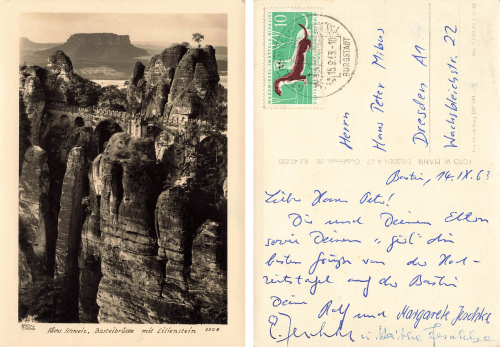 Sächs. Schweiz, Basteibrücke mit Lilienstein
10
15.9.63
BURGSTÄDT
Herrn
Hans Peter Mibus
Dresden A1
Wachsbleichstr. 22
FOTO W. HAHN
Bastei, 14.IX.63
Liebe Hans Peter!
Dir und Deinen Eltern
sowie Deinem "girl" die
besten Grüße von der Hoch-
zeitstafel auf der Bastei
Deine Rolf und Margarete Jeschke